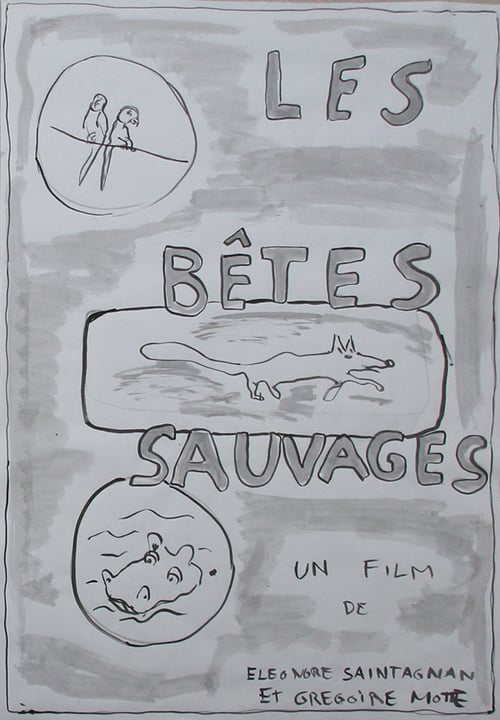 LES
BÊTES
SAUVAGES
UN FILM
DE
ELEONORE SAINTAGNAN
ET GREGOIRE MOTTE